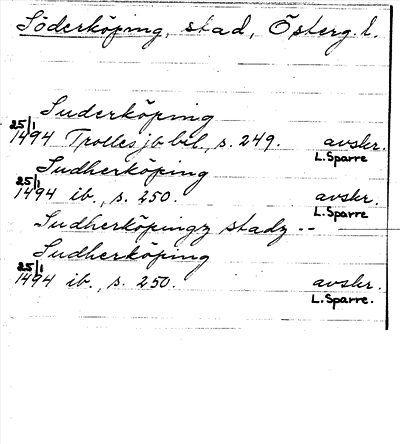 Söderköping, stad, Österg. l.
Suderköping
25/1 1494 Trolles jb bil., s. 249. avskr.
L. Sparre
Sudherköping
25/1 1494 ib., s. 250. avskr.
L. Sparre
Sudherköpingz stadz --
Sudherköping
25/1 1494 ib., s. 250. avskr.
L. Sparre.